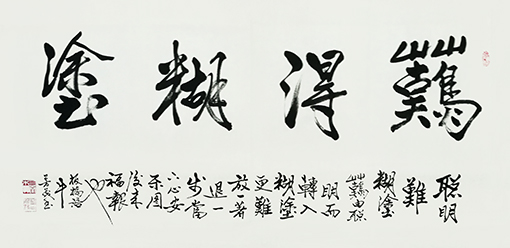 難得糊塗
聰明
難
糊塗
難由聰
明而
轉入
糊塗
更難
放一著
退一
步當
下心安
非圖
後來
福報
也
板橋語